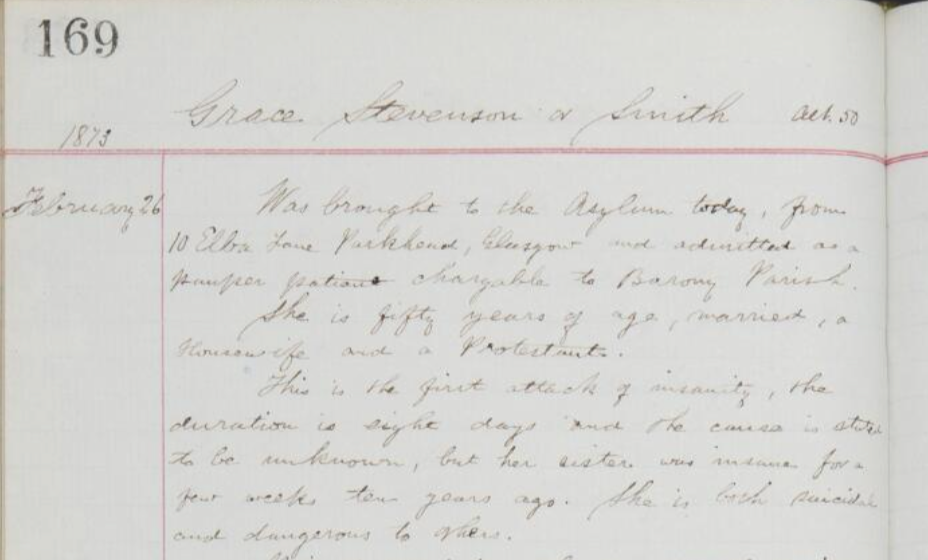 169
Grace Stevenson or Smith aet. 50
1873
February 26 Was brought to the Asylum today, from
10 Elba Lane Parkhead, Glasgow and admitted as a
pauper patient chargable to Barony Parish.
She is fifty years of age, married, a
Housewife and a Protestant.
This is the first attack of insanity, the
duration is eight days and the cause is stated
to be unknown, but her sister was insane for a
few weeks ten years ago. She is both suicidal
and dangerous to others.